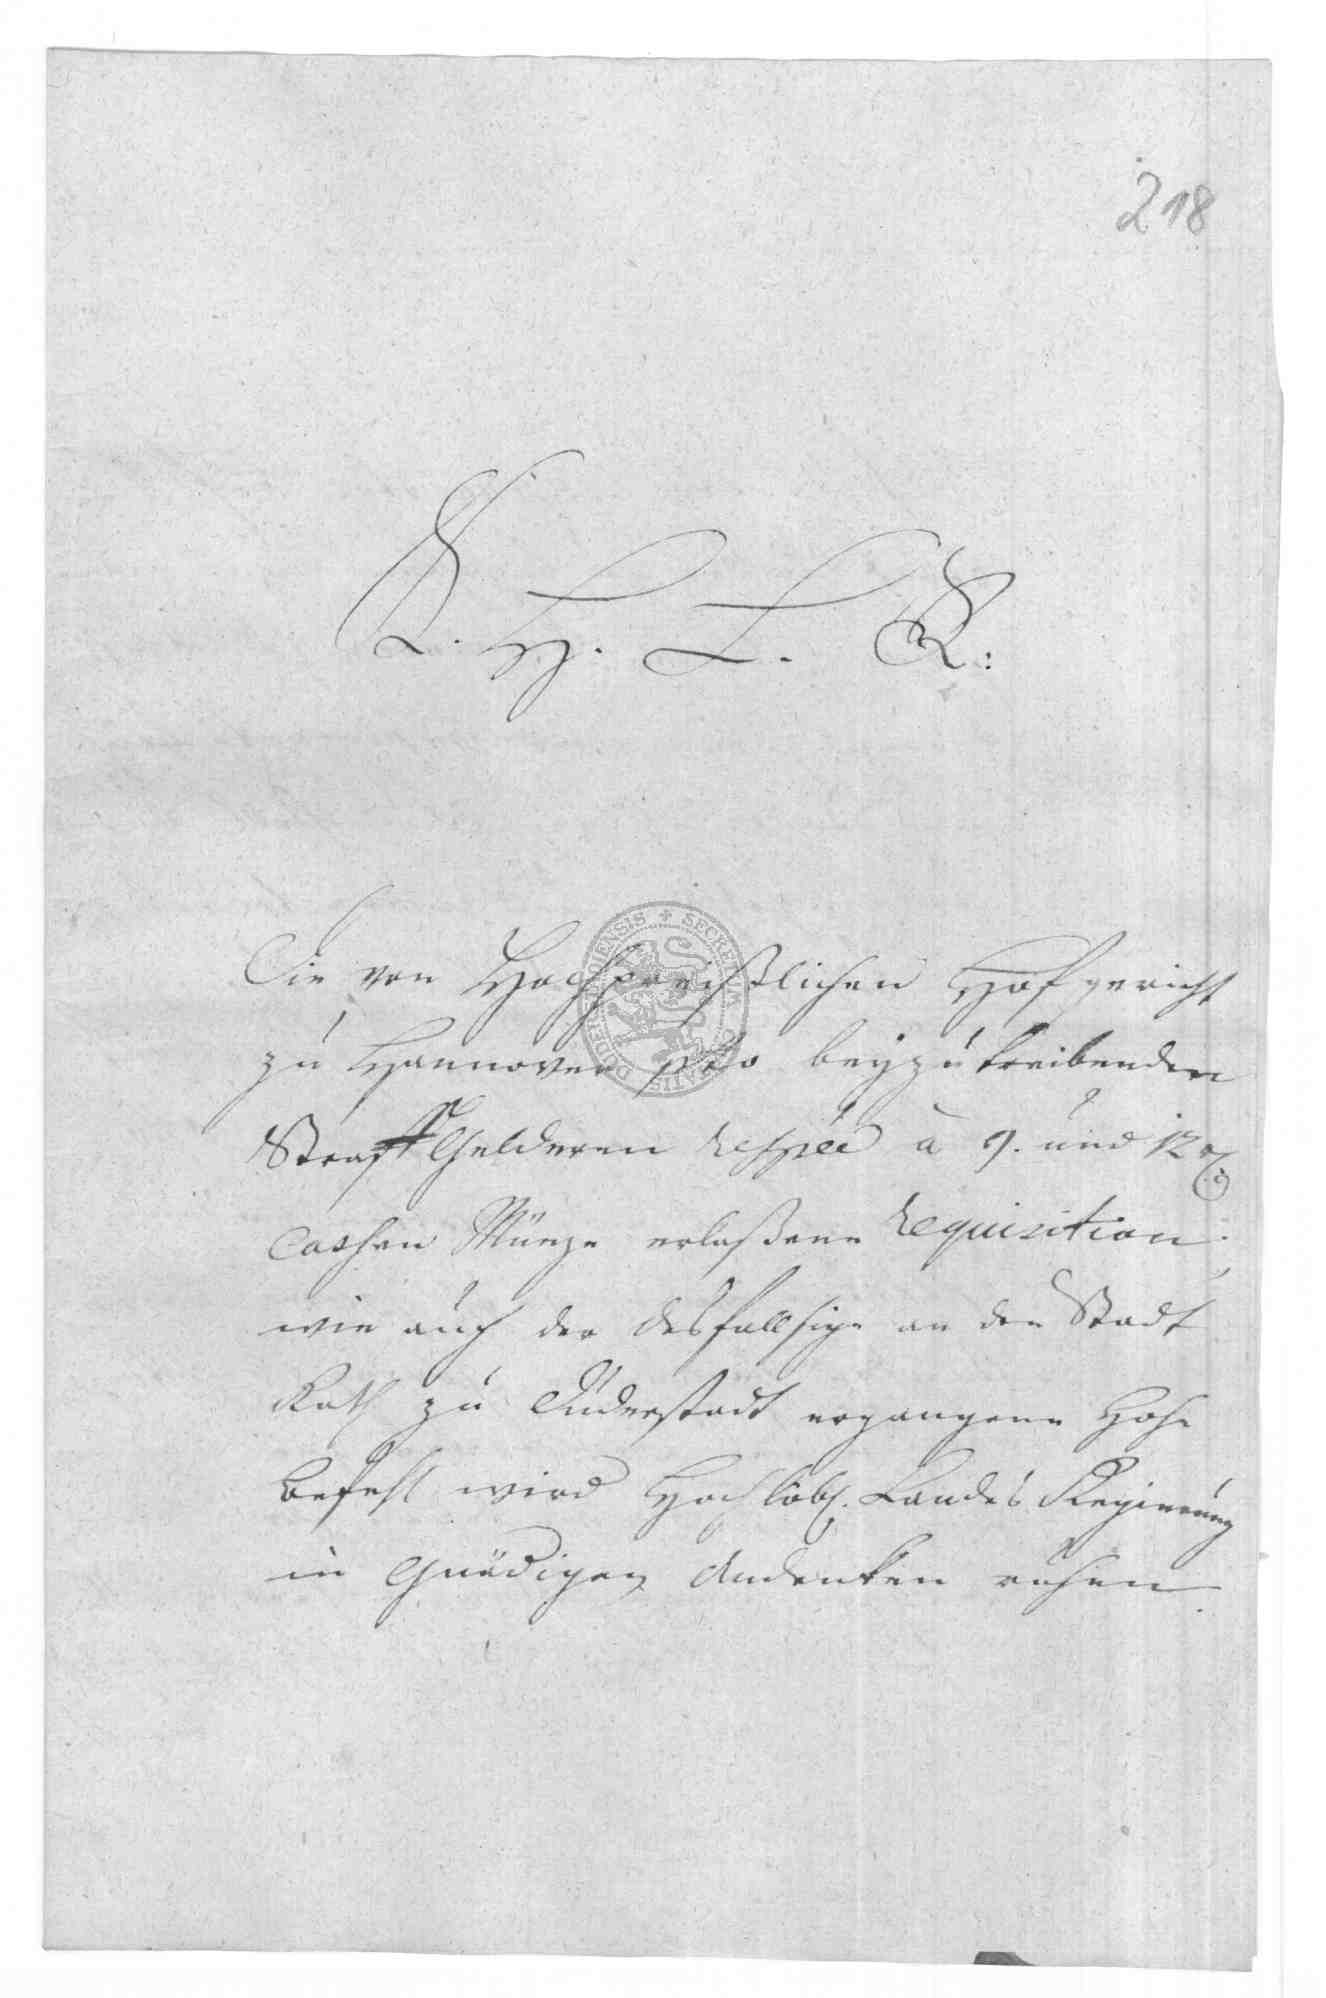 218
K. H. L. R:
Die von Hochpreißlichen Hofgericht
zu Hannover pto beyzutreibenden
Straff Gelderen respée a 9. und 12 rℓ.
Cassen Münze erlaßene Requisition
wie auch der desfallsige an den Stadt
Rath zu Duderstadt ergangene Hohe
Befehl wird Hochlöbl. Landes Regierung
in Gnädigen Andenken ruhen
SECRETUM CIVITATIS DUDERSTADIENSIS